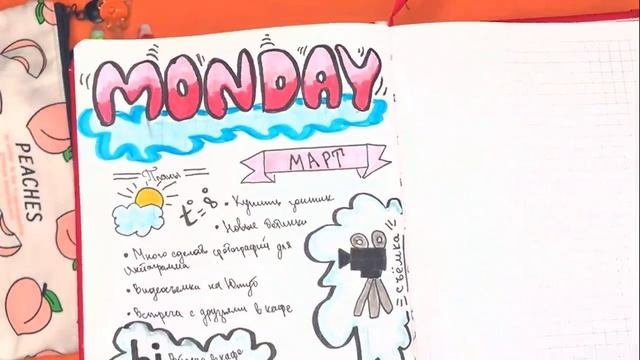 MONDAY
МАРТ
Планы
t = 8
• Купить зонтик
• Новые ботинки
• Много сделать фотографий для
Инстаграмма
• Видеосъёмка на Ютуб
• Встреча с друзьями в кафе
съёмка
hi
в кафе
PEACHES